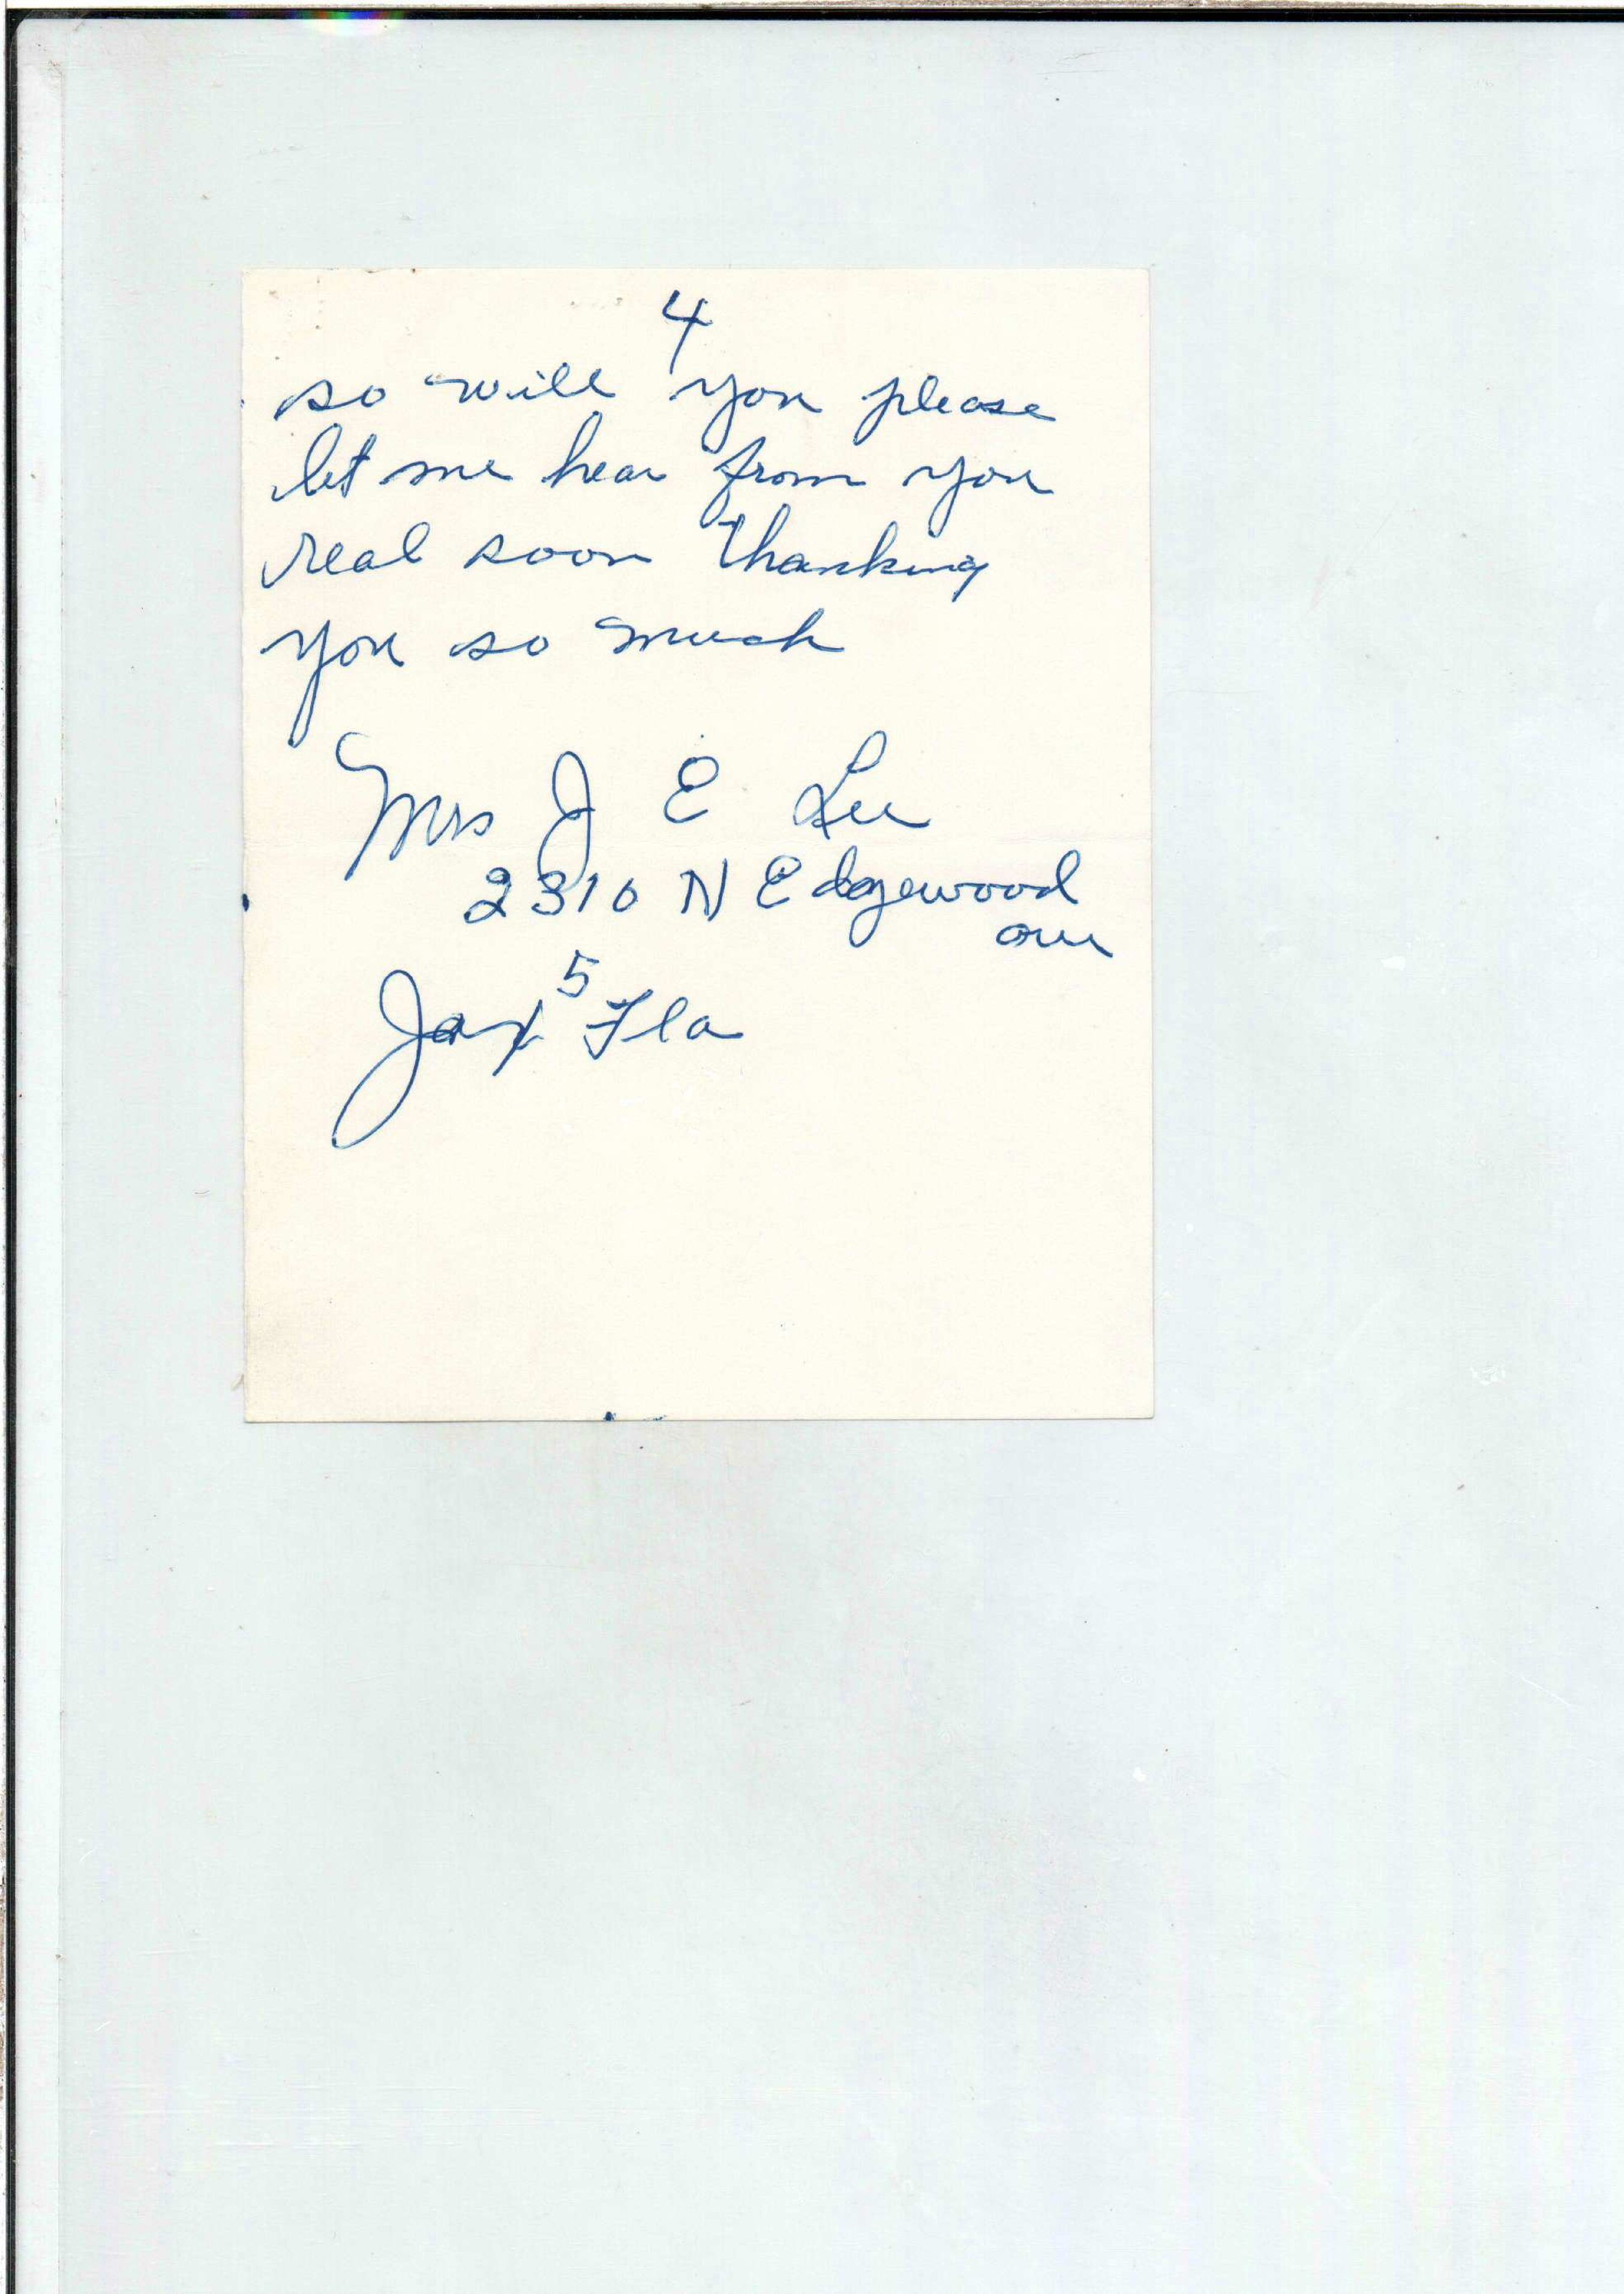 4
so will you please
let me hear from you
real soon thanking
you so much
Mrs J E Lee
2310 N Edgewood
ave
Jax 5 Fla